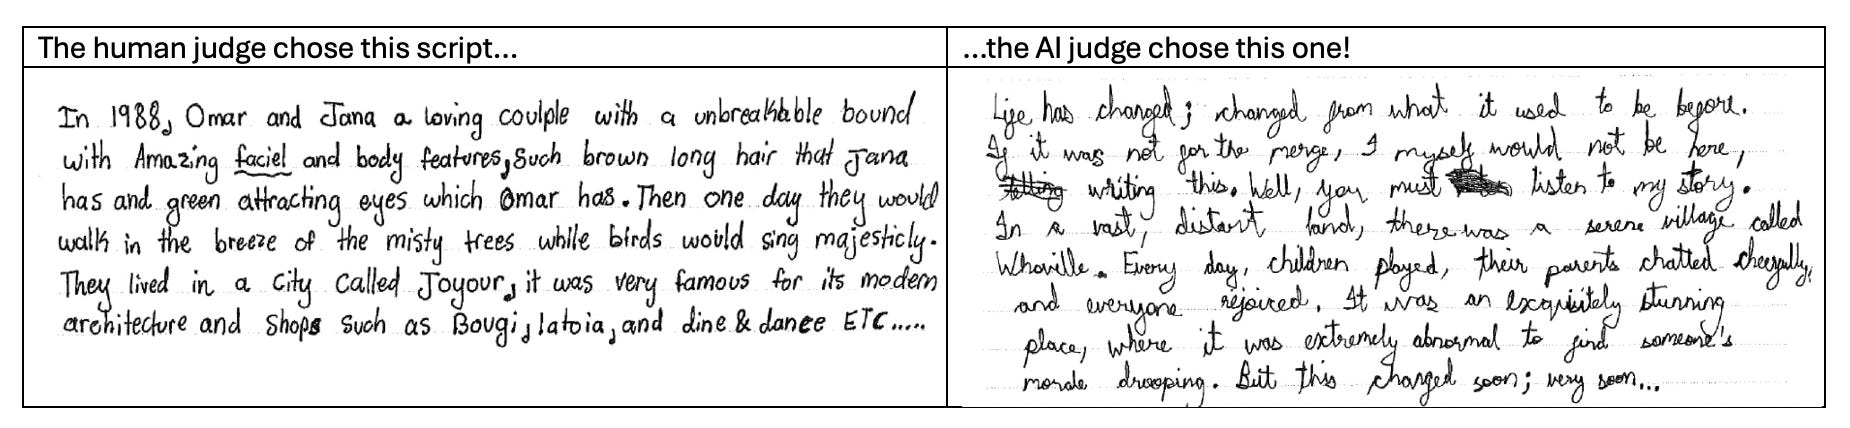 The human judge chose this script...
In 1988, Omar and Jana a loving coulple with a unbreakable bound
with Amazing faciel and body features, Such brown long hair that Jana
has and green attracting eyes which Omar has. Then one day they would
walk in the breeze of the misty trees while birds would sing majesticly.
They lived in a City Called Joyour, it was very famous for its modern
architecture and Shops Such as Bougi, latoia, and dine & dance ETC.....
...the AI judge chose this one!
Life has changed; changed from what it used to be before.
If it was not for the merge, I myself would not be here,
writing this. Well, you must listen to my story.
In a vast, distant land, there was a serene village called
Whoville. Every day, children played, their parents chatted cheerfully,
and everyone rejoiced. It was an exquisitely stunning
place, where it was extremely abnormal to find someone's
morale drooping. But this changed soon; very soon...